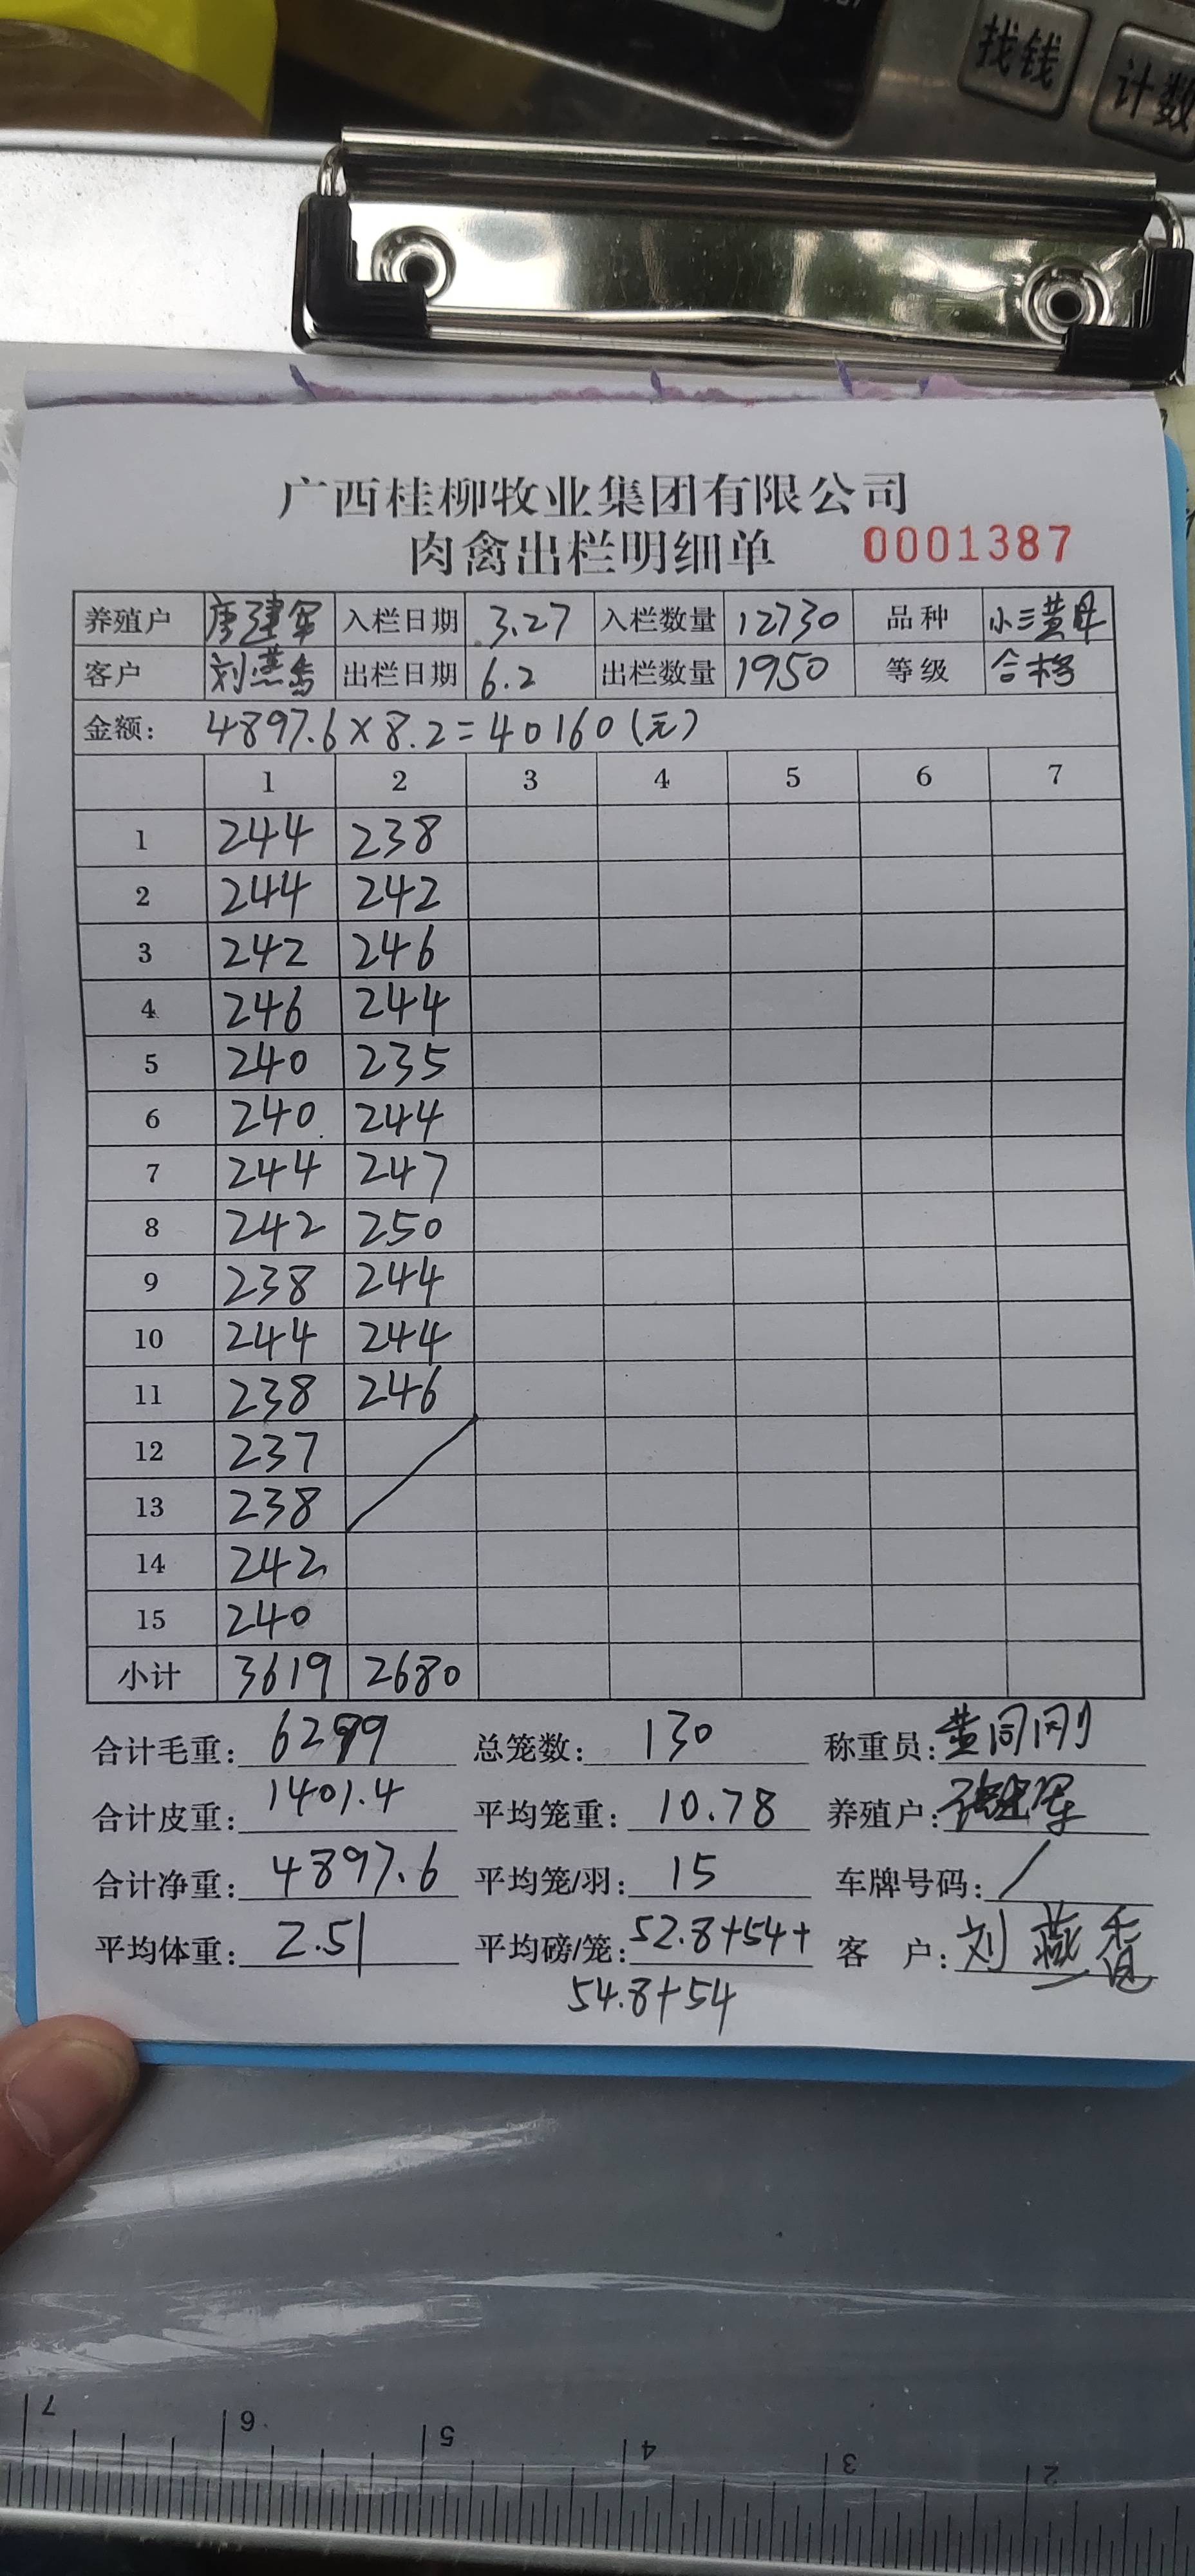 找钱 计数
广西桂柳牧业集团有限公司
肉禽出栏明细单 0001387
养殖户 唐建军 入栏日期 3.27 入栏数量 12730 品种 小三黄母
客户 刘燕香 出栏日期 6.2 出栏数量 1950 等级 合格
金额: 4897.6×8.2=40160(元)
1 2 3 4 5 6 7
1 244 238
2 244 242
3 242 246
4 246 244
5 240 235
6 240 244
7 244 247
8 242 250
9 238 244
10 244 244
11 238 246
12 237
13 238
14 242
15 240
小计 3619 2680
合计毛重: 6299 总笼数: 130 称重员: 黄同刚
合计皮重: 1401.4 平均笼重: 10.78 养殖户:
合计净重: 4897.6 平均笼/羽: 15 车牌号码: /
平均体重: 2.51 平均磅/笼: 52.8+54+ 客 户: 刘燕香
54.8+54
7 6 5 4 3 2